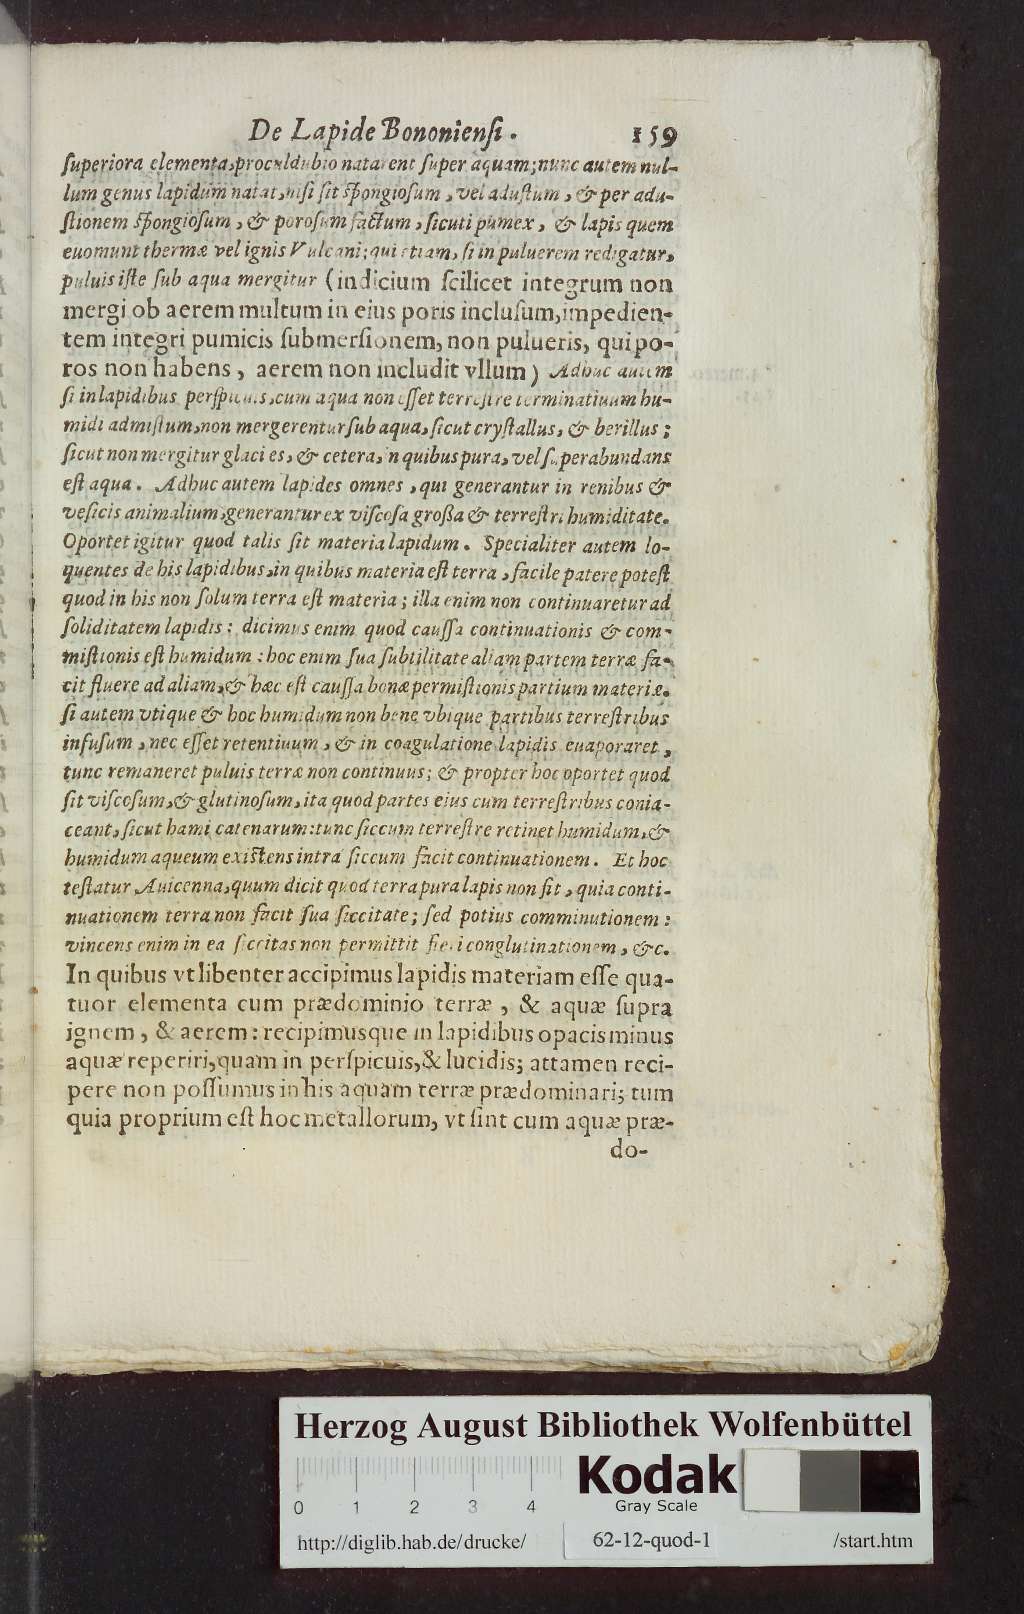 De Lapide Bononiensi. 159
ſuperiora elementa, proculdubio natarent ſuper aquam; nunc autem nul-
lum genus lapidum natat, niſi ſit ſpongioſum, vel aduſtum, & per adu-
ſtionem ſpongioſum, & poroſum factum, ſicuti pumex, & lapis quem
euomunt thermæ vel ignis Vulcani; qui etiam, ſi in puluerem redigatur,
puluis iſte ſub aqua mergitur (indicium ſcilicet integrum non
mergi ob aerem multum in eius poris incluſum, impedien-
tem integri pumicis ſubmerſionem, non pulueris, qui po-
ros non habens, aerem non includit vllum) Adhuc autem
ſi in lapidibus perſpicuis, cum aqua non eſſet terreſtre terminatiuum hu-
midi admiſtum, non mergerentur ſub aqua, ſicut cryſtallus, & berillus;
ſicut non mergitur glacies, & cetera, in quibus pura, vel ſuperabundans
eſt aqua. Adhuc autem lapides omnes, qui generantur in renibus &
veſicis animalium, generantur ex viſcoſa groſſa & terreſtri humiditate.
Oportet igitur quod talis ſit materia lapidum. Specialiter autem lo-
quentes de his lapidibus, in quibus materia eſt terra, facile patere poteſt
quod in his non ſolum terra eſt materia; illa enim non continuaretur ad
ſoliditatem lapidis: dicimus enim quod cauſſa continuationis & com-
miſtionis eſt humidum: hoc enim ſua ſubtilitate aliam partem terræ fa-
cit fluere ad aliam, & hæc eſt cauſſa bonæ permiſtionis partium materiæ.
ſi autem vtique & hoc humidum non bene vbique partibus terreſtribus
infuſum, nec eſſet retentiuum, & in coagulatione lapidis euaporaret,
tunc remaneret puluis terræ non continuus; & propter hoc oportet quod
ſit viſcoſum, & glutinoſum, ita quod partes eius cum terreſtribus conia-
ceant, ſicut hami catenarum: tunc ſiccum terreſtre retinet humidum, &
humidum aqueum exiſtens intra ſiccum facit continuationem. Et hoc
teſtatur Auicenna, quum dicit quod terra pura lapis non fit, quia conti-
nuationem terra non facit ſua ſiccitate; ſed potius comminutionem:
vincens enim in ea ſiccitas non permittit fieri conglutinationem, &c.
In quibus vt libenter accipimus lapidis materiam eſſe qua-
tuor elementa cum prædominio terræ, & aquæ ſupra
ignem, & aerem: recipimusque in lapidibus opacis minus
aquæ reperiri, quam in perſpicuis, & lucidis; attamen reci-
pere non poſſumus in his aquam terræ prædominari; tum
quia proprium eſt hoc metallorum, vt ſint cum aquæ præ-
do-
Herzog August Bibliothek Wolfenbüttel
Kodak
Gray Scale
0 1 2 3 4
http://diglib.hab.de/drucke/ 62-12-quod-1 /start.htm